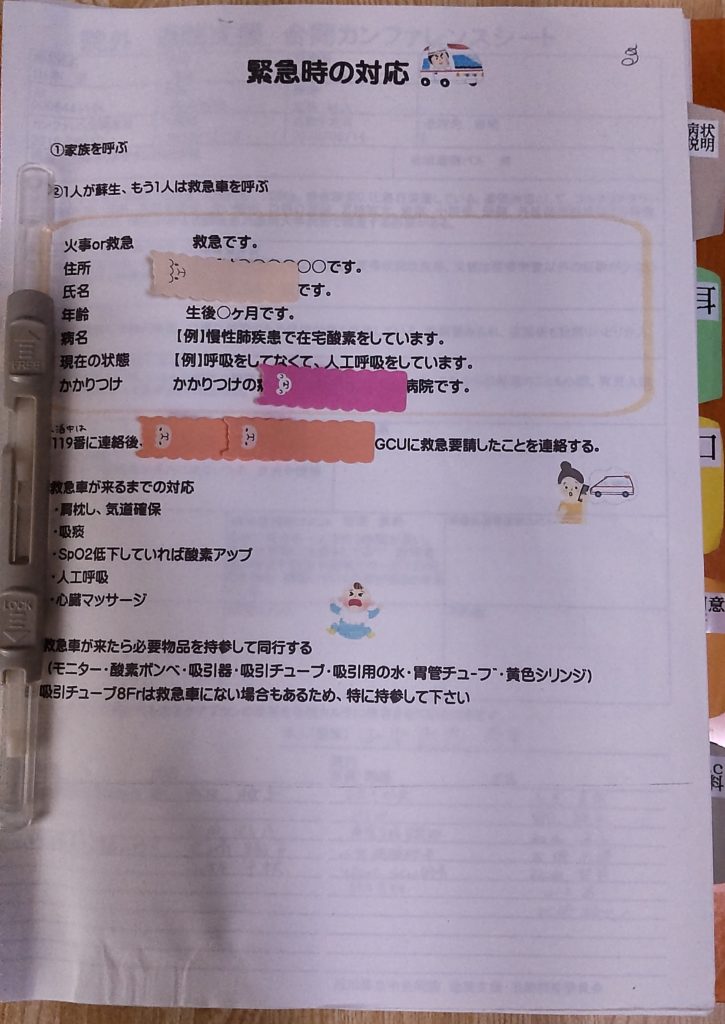 緊急時の対応
①家族を呼ぶ
②1人が蘇生、もう1人は救急車を呼ぶ
火事or救急 救急です。
住所 〇〇です。
氏名 です。
年齢 生後〇ヶ月です。
病名 【例】慢性肺疾患で在宅酸素をしています。
現在の状態 【例】呼吸をしてなくて、人工呼吸をしています。
かかりつけ かかりつけの 病院です。
119番に連絡後、 GCUに救急要請したことを連絡する。
救急車が来るまでの対応
・肩枕し、気道確保
・吸痰
・SpO2低下していれば酸素アップ
・人工呼吸
・心臓マッサージ
救急車が来たら必要物品を持参して同行する
（モニター・酸素ボンベ・吸引器・吸引チューブ・吸引用の水・胃管チューブ・黄色シリンジ）
吸引チューブ8Frは救急車にない場合もあるため、特に持参して下さい
病状
説明
FREE
LOCK